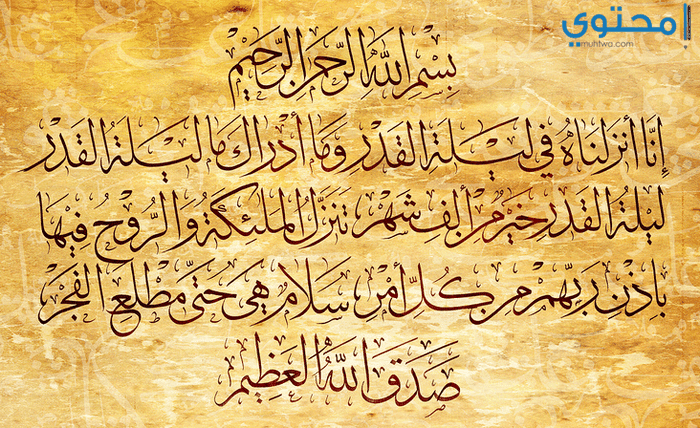 محتوي
muhtwa.com
بِسْمِ اللَّهِ الرَّحْمَنِ الرَّحِيمِ
إِنَّا أَنزَلْنَاهُ فِي لَيْلَةِ الْقَدْرِ وَمَا أَدْرَاكَ مَا لَيْلَةُ الْقَدْرِ
لَيْلَةُ الْقَدْرِ خَيْرٌ مِنْ أَلْفِ شَهْرٍ تَنَزَّلُ الْمَلَئِكَةُ وَالرُّوحُ فِيهَا
بِإِذْنِ رَبِّهِمْ مِنْ كُلِّ أَمْرٍ سَلَامٌ هِيَ حَتَّى مَطْلَعِ الْفَجْرِ
صَدَقَ اللَّهُ الْعَظِيمُ